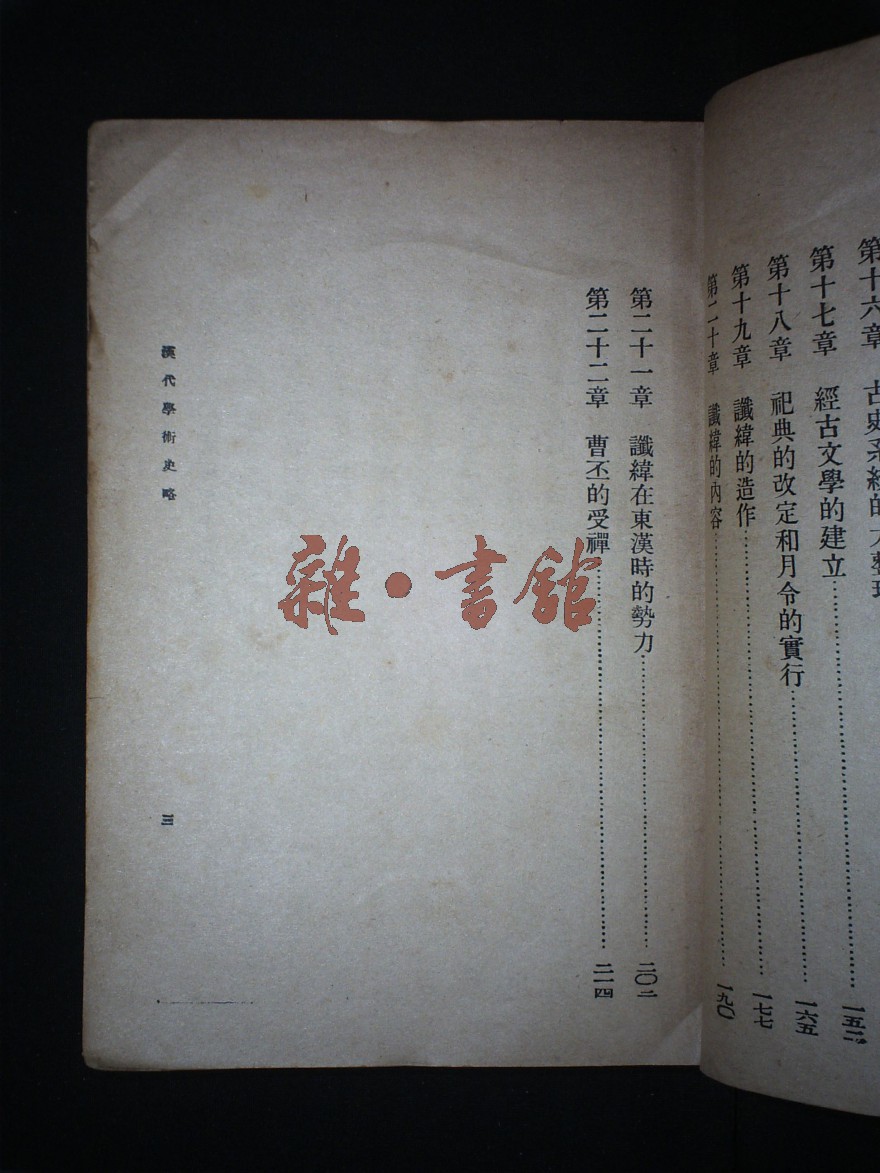 第十六章 古史系統的大整理
第十七章 經古文學的建立……………一五二
第十八章 祀典的改定和月令的實行……………一六五
第十九章 讖緯的造作……………一七七
第二十章 讖緯的內容……………一九〇
第二十一章 讖緯在東漢時的勢力……………二〇二
第二十二章 曹丕的受禪……………二一四
漢代學術史略
三
雜·書館